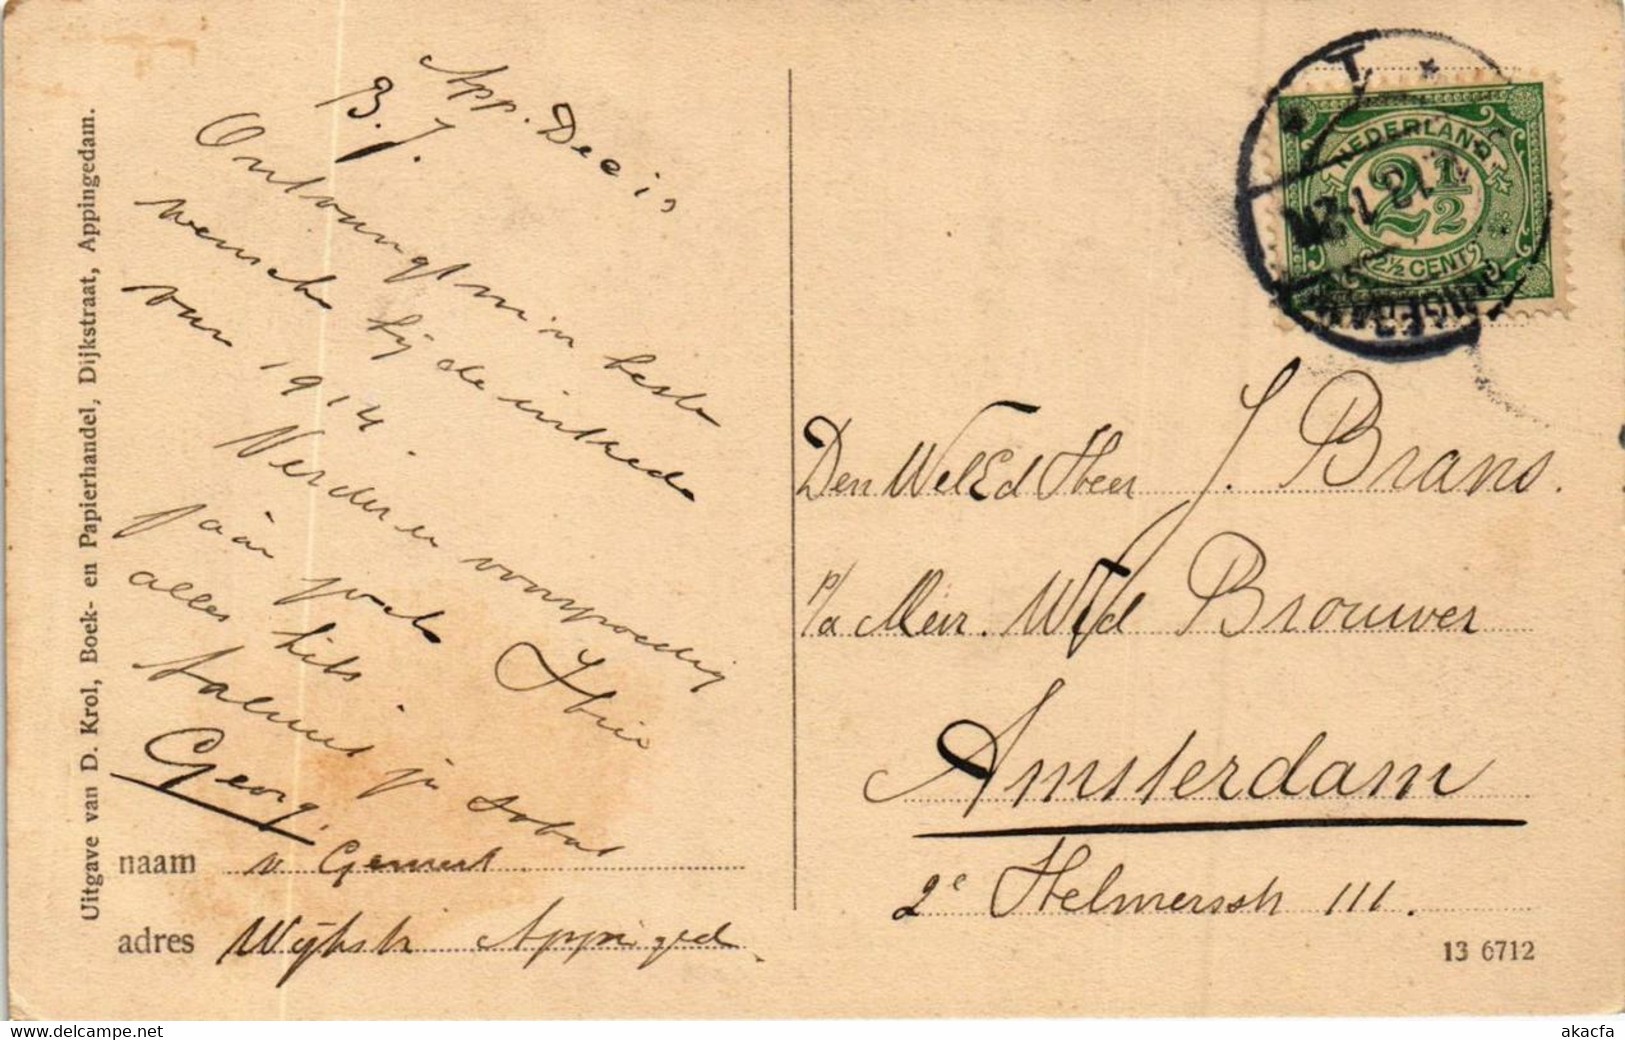 App. Dec 13
B. J.
Ontvangt mijn beste
wensche bij de intrede
van 1914.
Verder een voorspoedig
jaar
alles
Georg.
naam v. Gemert
adres Wijkstr Appinged.
Uitgave van D. Krol, Boek- en Papierhandel, Dijkstraat, Appingedam.
NEDERLAND
2½
2½ CENT
Den WelEd Heer J. Brans.
p/a Mevr. Wed Brouwer
Amsterdam
2e Helmersstr 111.
13 6712
akacfa
www.delcampe.net